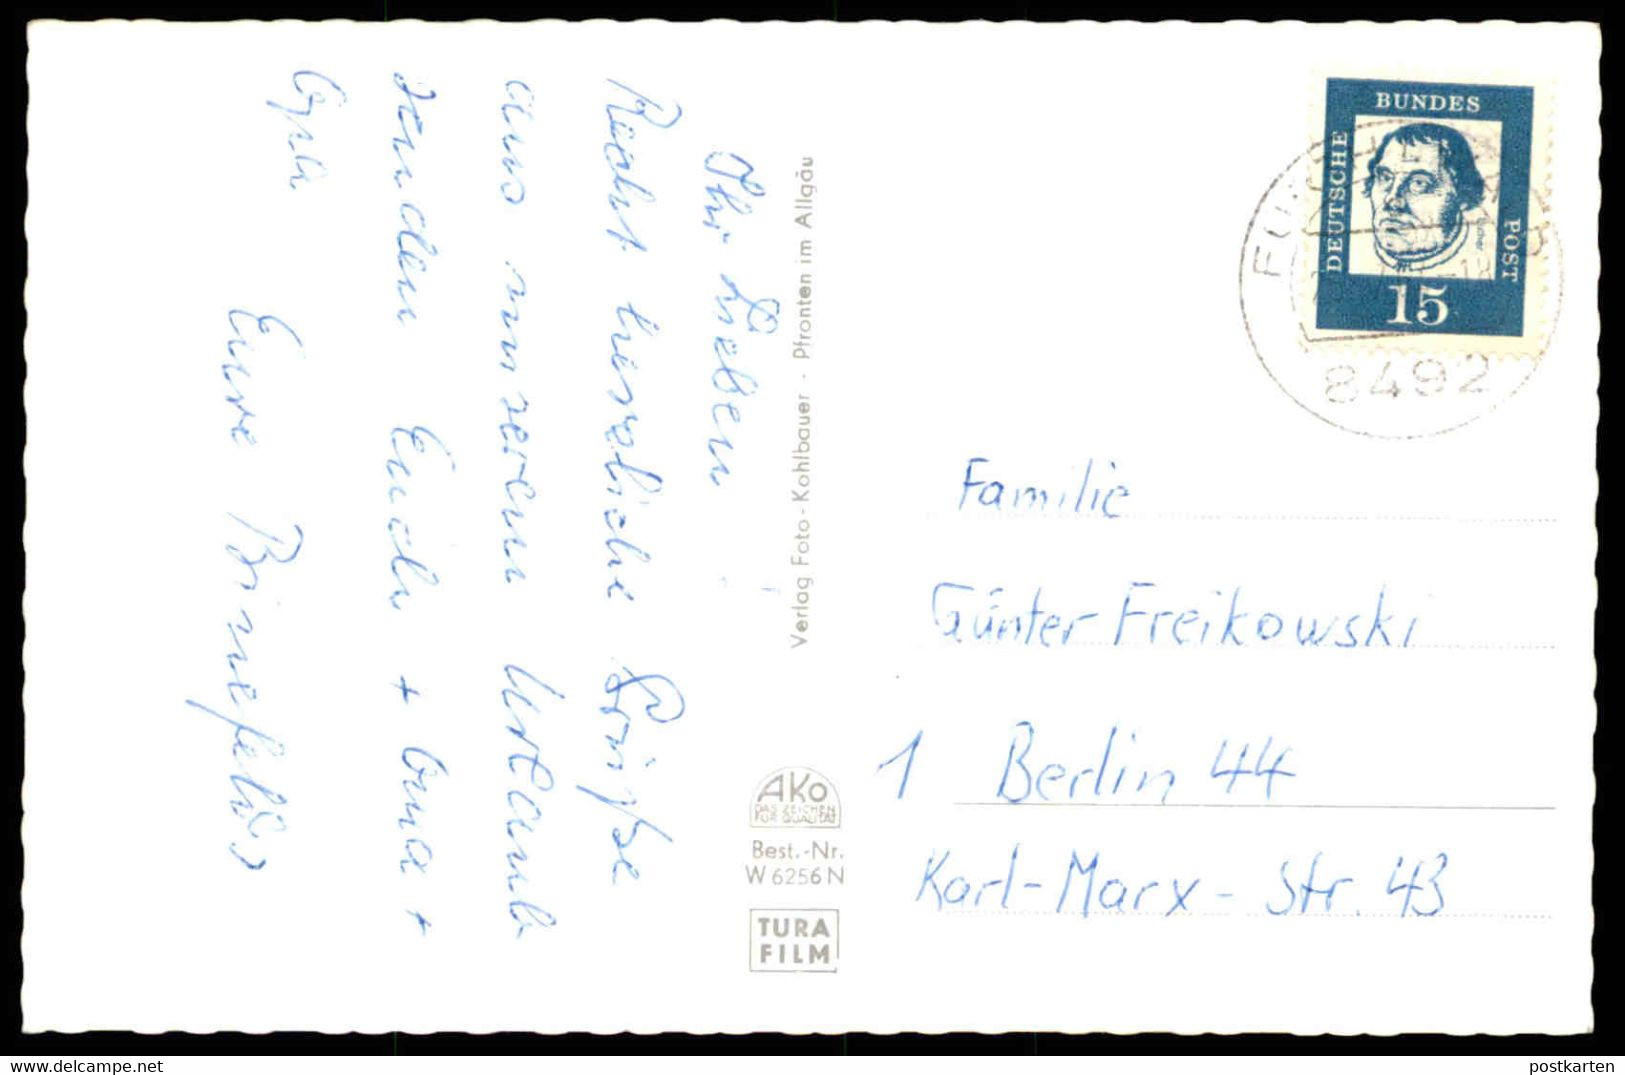 Ihr Lieben
Recht herzliche Grüße
aus unserem Urlaub
senden Euch + Oma +
Opa
Eure
Verlag Foto-Kohlbauer · Pfronten im Allgäu
AKo
DAS ZEICHEN
FÜR QUALITÄT
Best.-Nr.
W 6256 N
TURA
FILM
DEUTSCHE
BUNDES
POST
Luther
15
8492
Familie
Günter Freikowski
1 Berlin 44
Karl-Marx-Str. 43
postkarten
delcampe.net